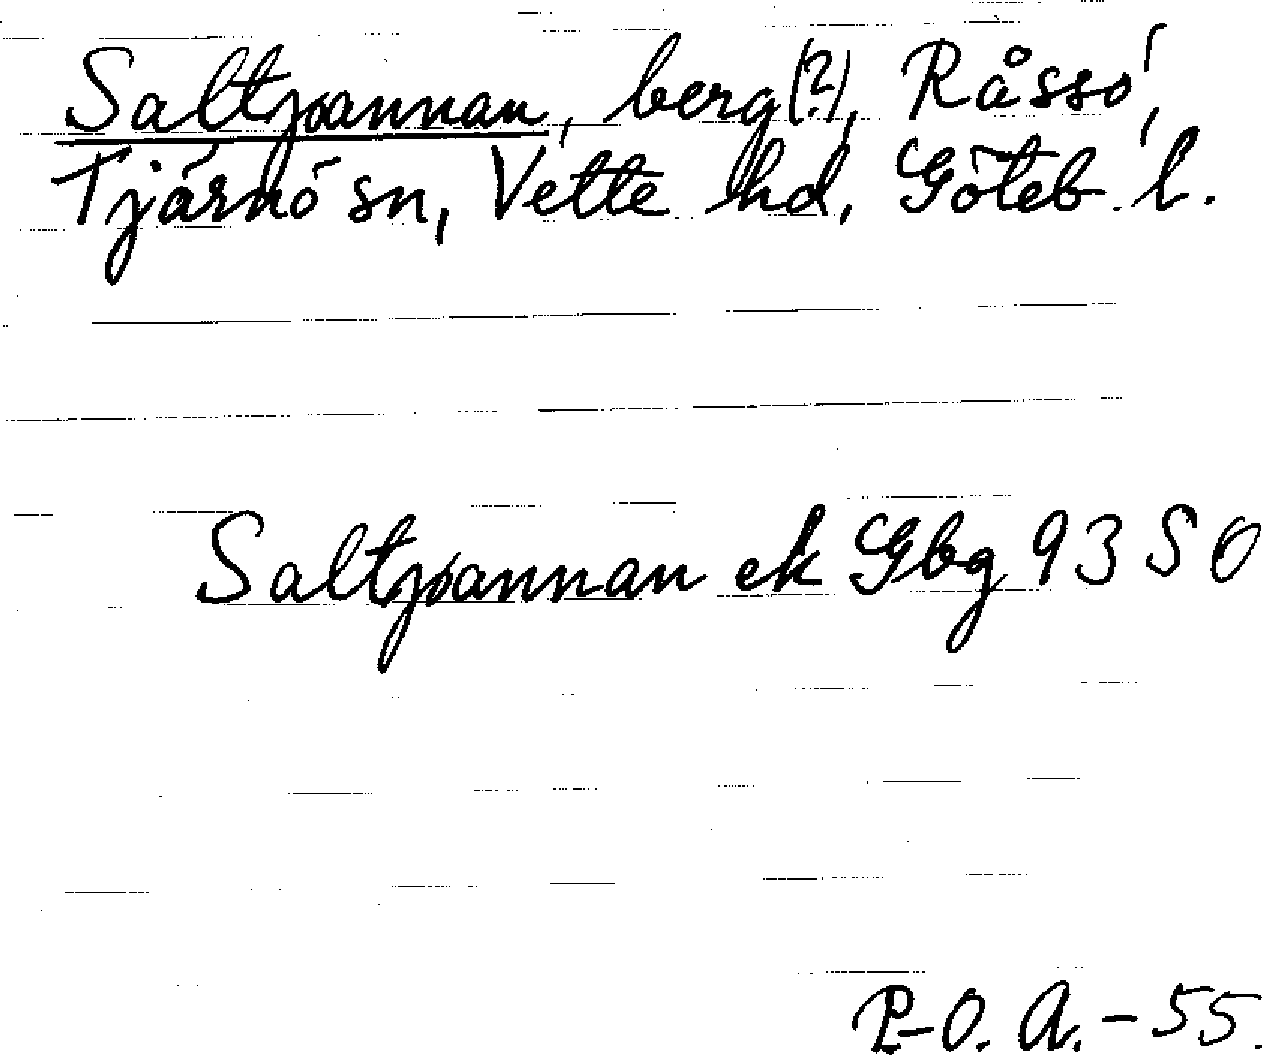 Saltpannan, berg(?), Råssö,
Tjärnö sn, Vette hd, Göteb. l.
Saltpannan ek Gbg 93 SO
P-O. A. - 55.